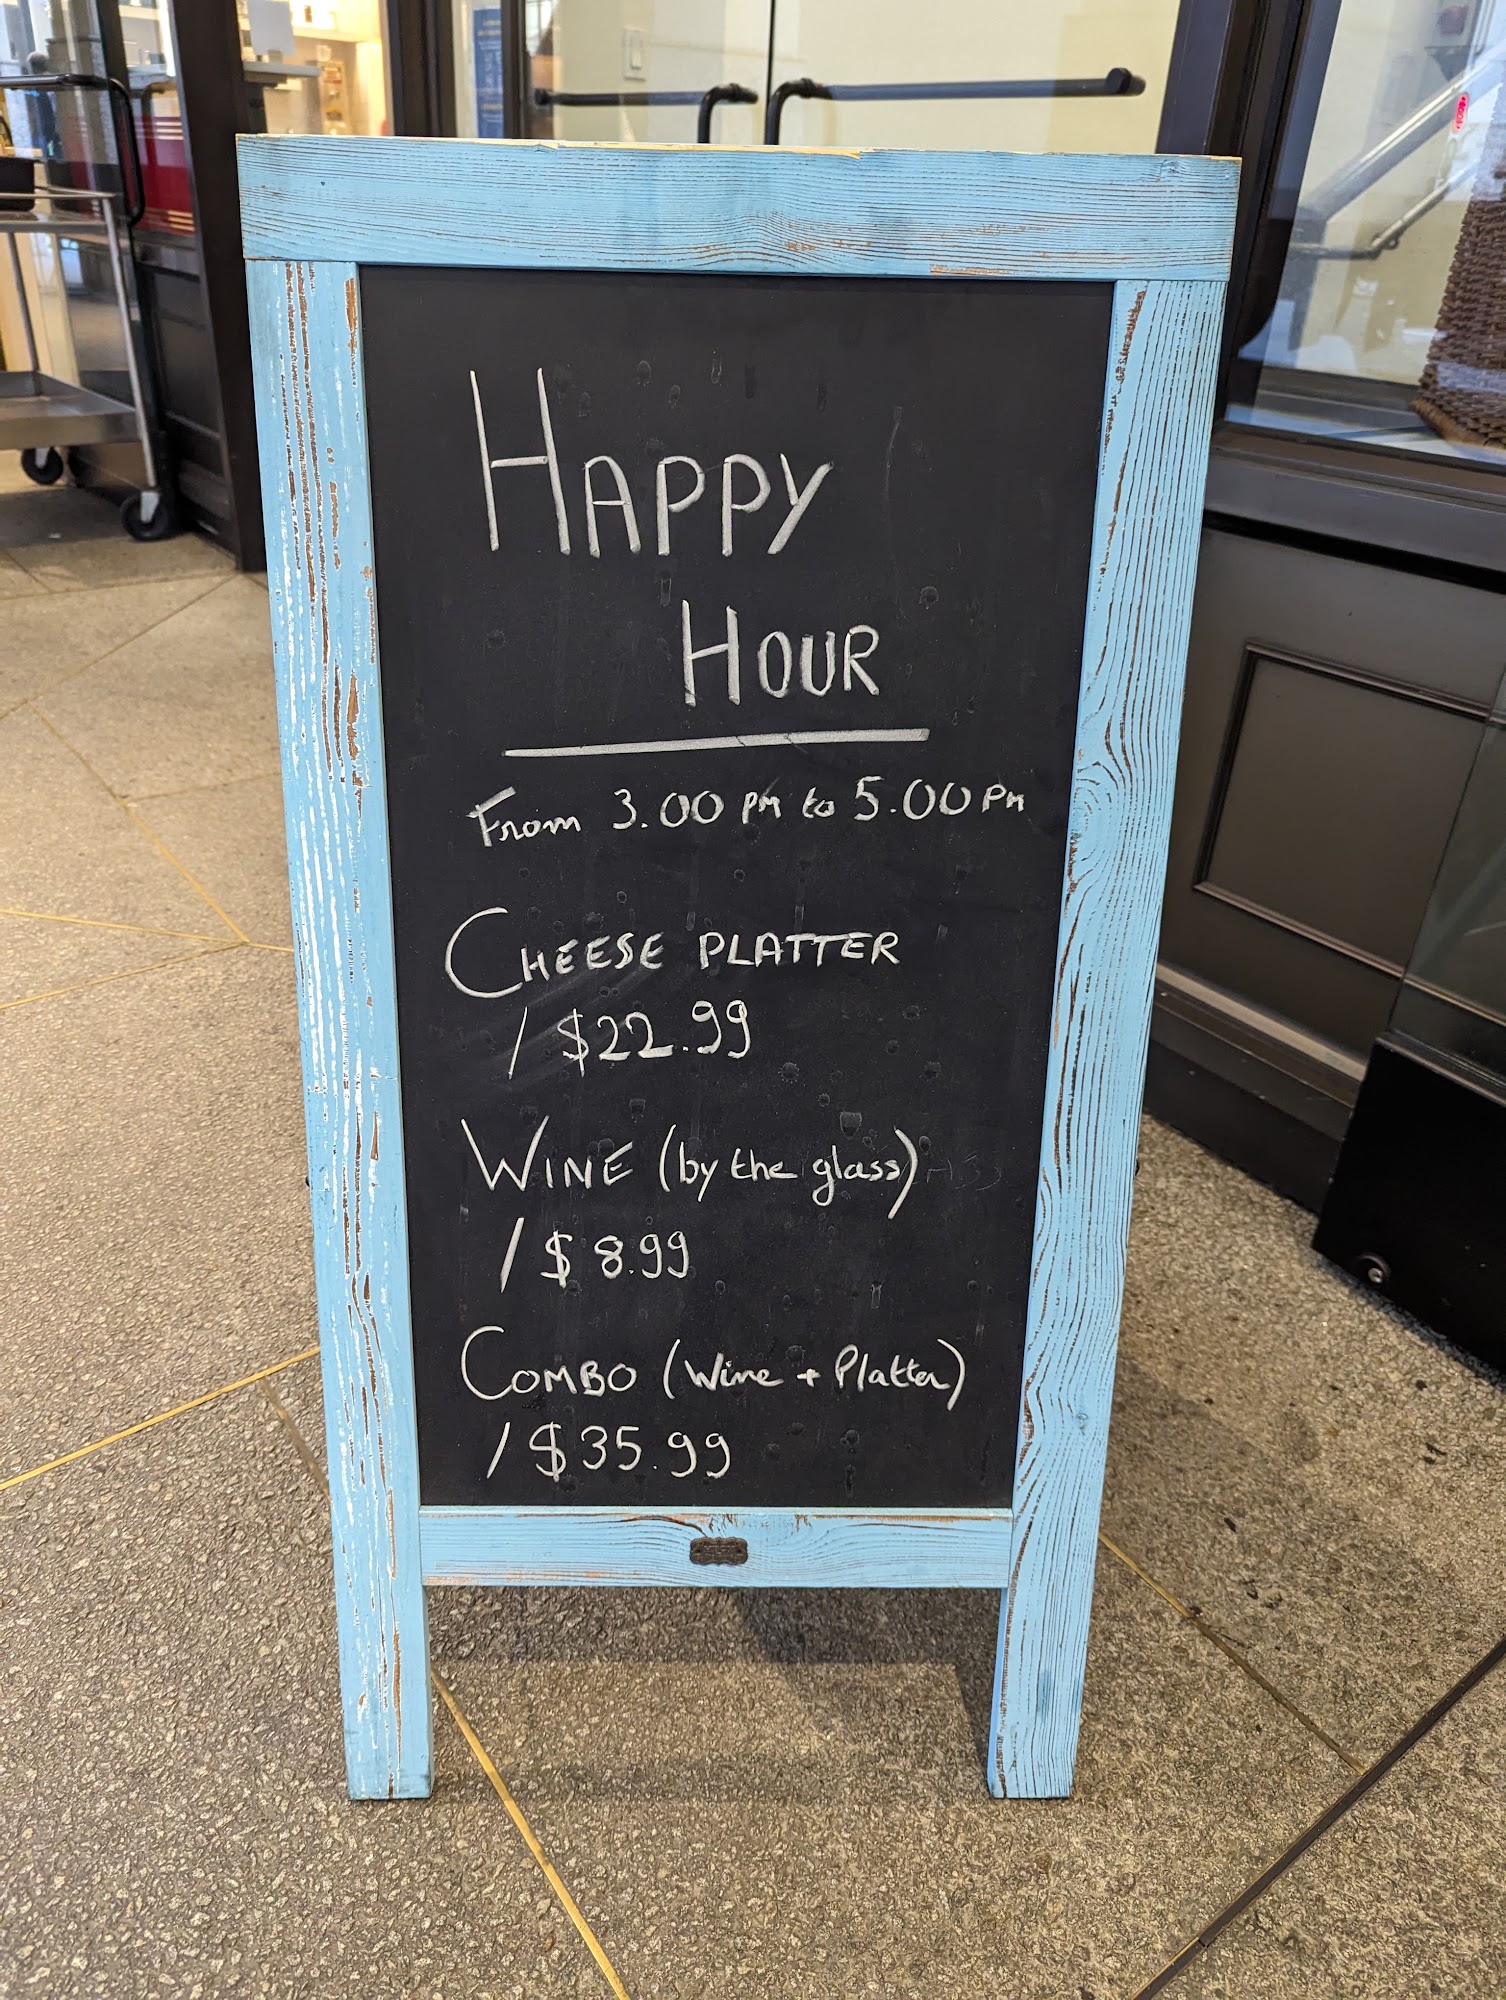 HAPPY
HOUR
From 3.00 PM to 5.00 PM
CHEESE PLATTER
/ $22.99
WINE (by the glass)
/ $ 8.99
COMBO (Wine + Platter)
/ $35.99